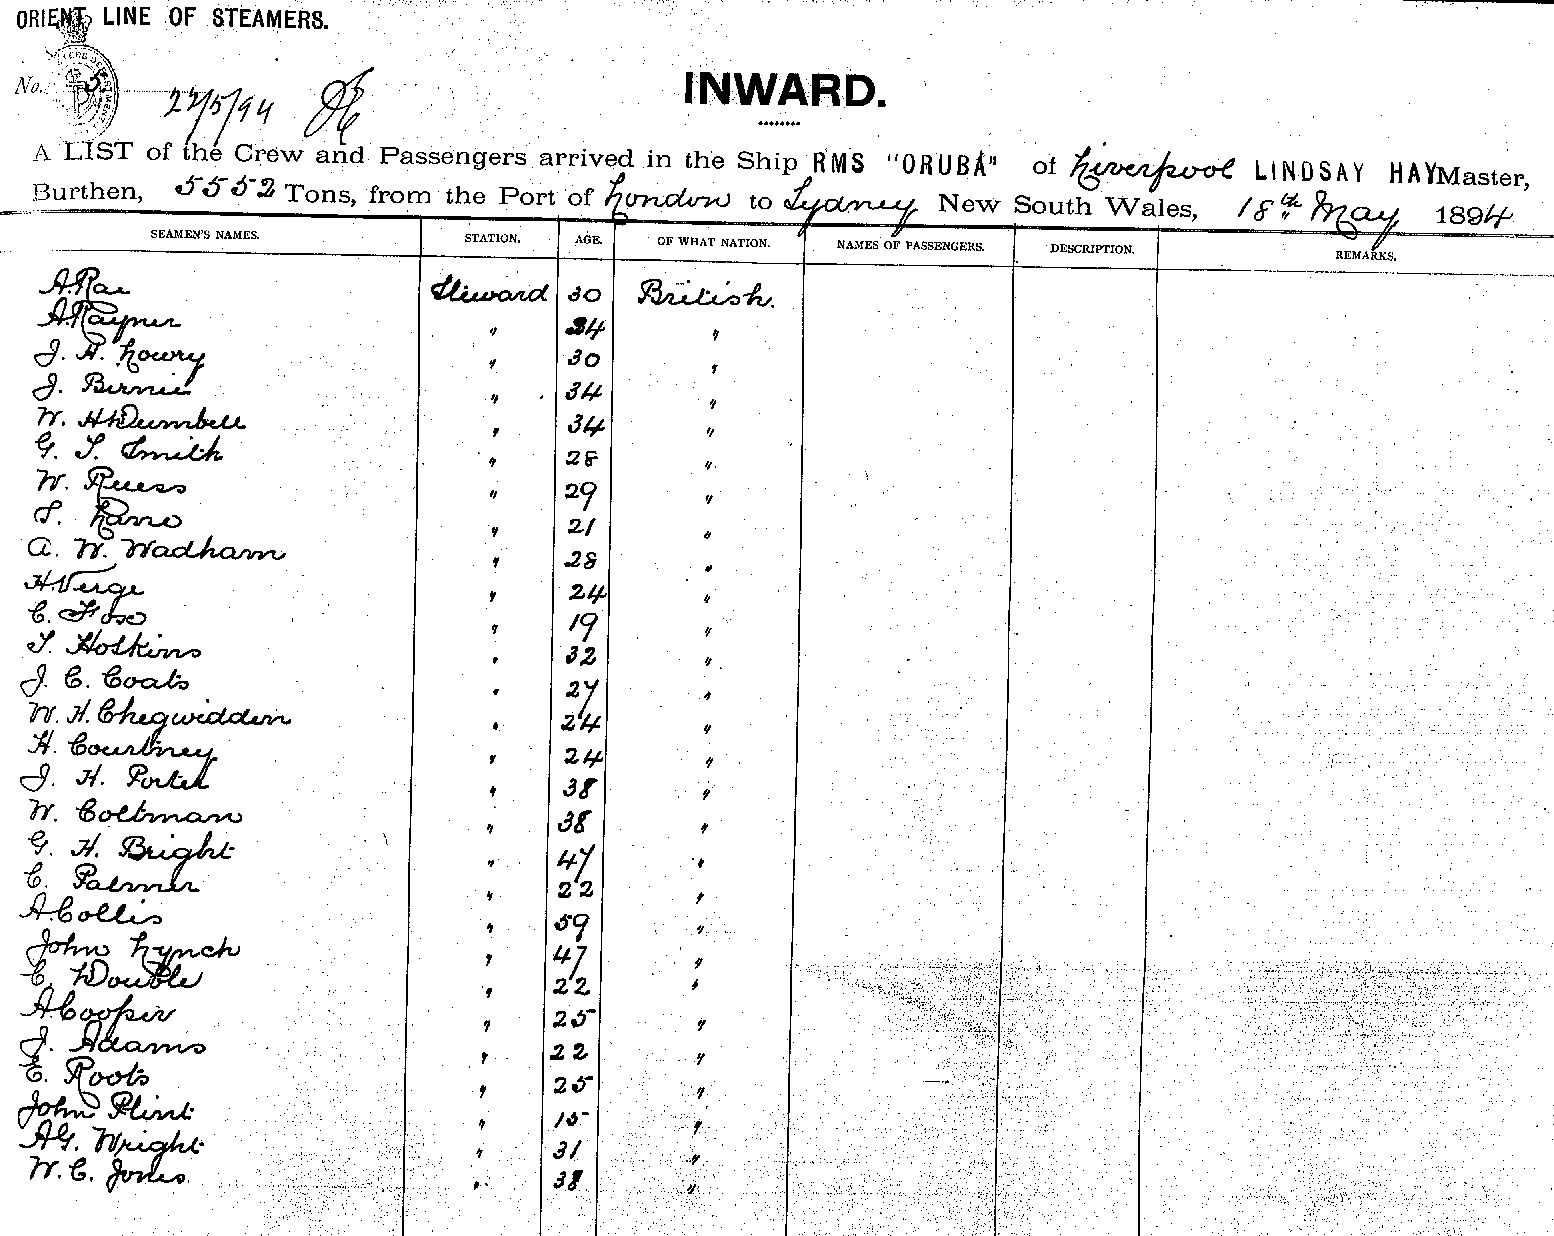 ORIENT LINE OF STEAMERS.
No. 5
22/5/94
INWARD.
A LIST of the Crew and Passengers arrived in the Ship RMS "ORUBA" of Liverpool LINDSAY HAY Master,
Burthen, 5552 Tons, from the Port of London to Sydney New South Wales, 18th May 1894
SEAMEN'S NAMES. STATION. AGE. OF WHAT NATION. NAMES OF PASSENGERS. DESCRIPTION. REMARKS.
A. Rae Steward 30 British.
A. Rayner " 34 "
J. A. Lowry " 30 "
J. Birnie " 34 "
W. H. Dumbell " 34 "
G. S. Smith " 28 "
W. Ruess " 29 "
S. " 21 "
A. W. Wadham " 28 "
H. Verge " 24 "
C. Fose " 19 "
T. Hotkins " 32 "
J. C. Coats " 27 "
W. H. Chegwidden " 24 "
H. Courtney " 24 "
J. H. Porter " 38 "
W. Coltman " 38 "
G. H. Bright " 47 "
C. Palmer " 22 "
A. Collis " 59 "
John Lynch " 47 "
C. Double " 22 "
A Cooper " 25 "
J. Adams " 22 "
E. Roots " 25 "
John Flint " 15 "
A G. Wright " 31 "
W. C. Jones " 38 "